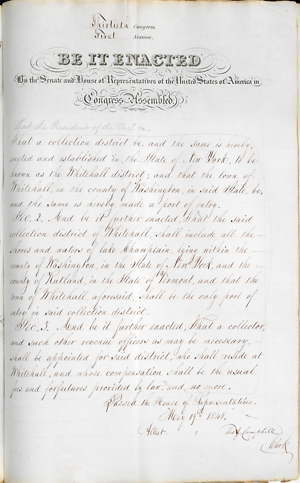 Thirtieth Congress
First Session.
BE IT ENACTED
By the Senate and House of Representatives of the United States of America in
Congress Assembled,
That a collection district be, and the same is hereby
created and established in the State of New York, to be
known as the Whitehall district; and that the town of
Whitehall, in the county of Washington, in said State, be,
and the same is hereby made a port of entry.
Sec. 2. And be it further enacted, That the said
collection district of Whitehall, shall include all the
shores and waters of lake Champlain, lying within the
county of Washington, in the State of New York, and the
county of Rutland, in the State of Vermont, and that the
town of Whitehall, aforesaid, shall be the only port of
entry in said collection district.
Sec. 3. And be it further enacted, That a collector,
and such other revenue officers as may be necessary,
shall be appointed for said district, who shall reside at
Whitehall, and whose compensation shall be the usual
fees and forfeitures provided by law, and no more.
Passed the House of Representatives.
May 19th 1848.
Attest
Campbell
Clerk